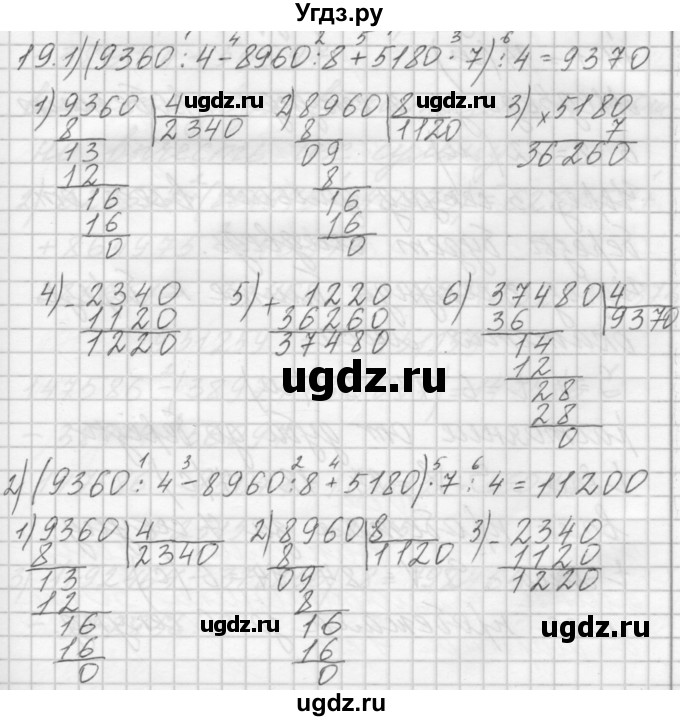 Угдз.ру
19.1) (9360 : 4 - 8960 : 8 + 5180 · 7) : 4 = 9370
1 4 2 5 3 6
1) 9360 | 4 2) 8960 | 8 3) × 5180
8 2340 8 1120 7
13 09 36260
12 8
16 16
16 16
0 0
ugdz.ru ugdz.ru
4) - 2340 5) + 1220 6) 37480 | 4
1120 36260 36 9370
1220 37480 14
12
28
28
0
ugdz.ru
2) (9360 : 4 - 8960 : 8 + 5180) · 7 : 4 = 11200
1 3 2 4 5 6
1) 9360 | 4 2) 8960 | 8 3) - 2340
8 2340 8 1120 1120
13 09 1220
12 8
16 16
16 16
0 0
ugdz.ru ugdz.ru
ugdz.ru